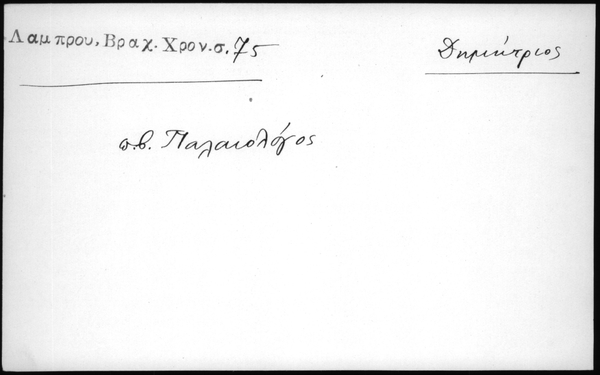 Λαμπρου, Βραχ. Χρον. σ. 75
Δημήτριος
π.β. Παλαιολόγος